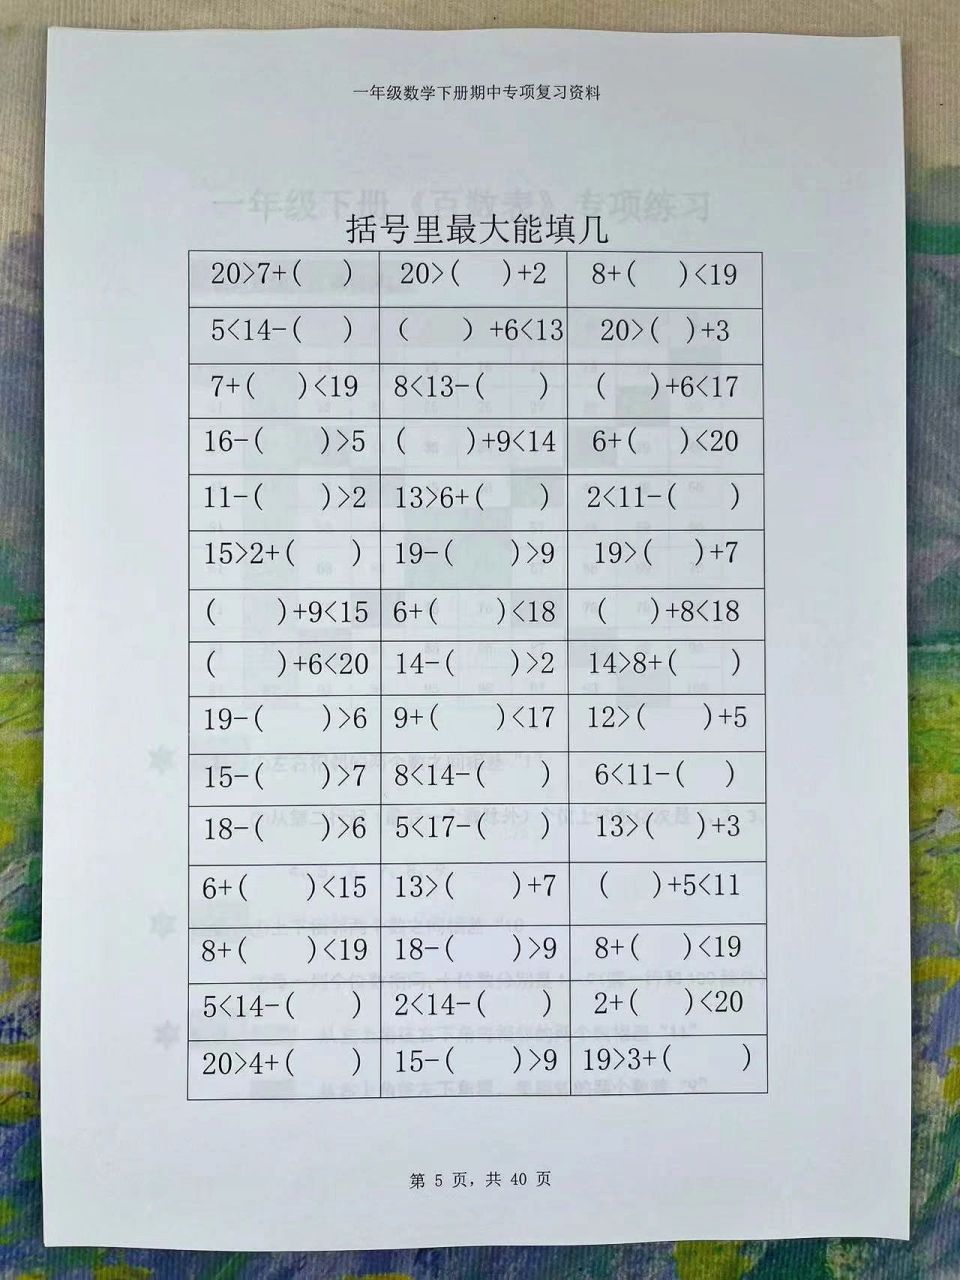 一年级数学下册期中专项复习资料
括号里最大能填几
20>7+( ) 20>( )+2 8+( )<19
5<14-( ) ( )+6<13 20>( )+3
7+( )<19 8<13-( ) ( )+6<17
16-( )>5 ( )+9<14 6+( )<20
11-( )>2 13>6+( ) 2<11-( )
15>2+( ) 19-( )>9 19>( )+7
( )+9<15 6+( )<18 ( )+8<18
( )+6<20 14-( )>2 14>8+( )
19-( )>6 9+( )<17 12>( )+5
15-( )>7 8<14-( ) 6<11-( )
18-( )>6 5<17-( ) 13>( )+3
6+( )<15 13>( )+7 ( )+5<11
8+( )<19 18-( )>9 8+( )<19
5<14-( ) 2<14-( ) 2+( )<20
20>4+( ) 15-( )>9 19>3+( )
第 5 页，共 40 页